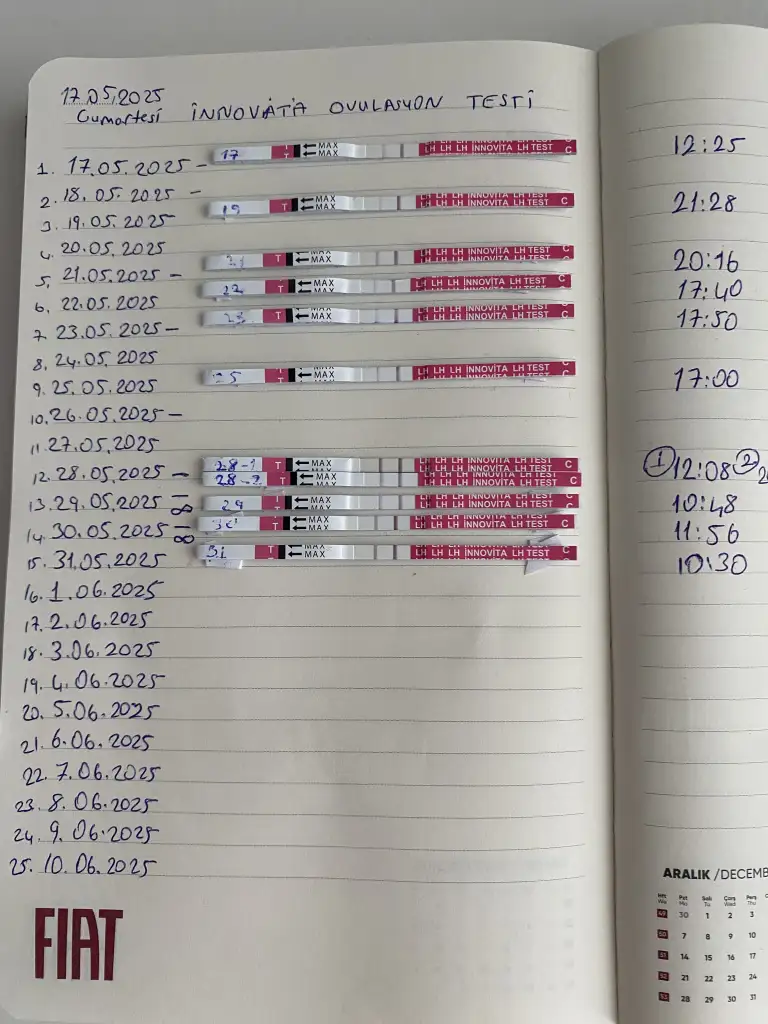 17.05.2025
Cumartesi İNNOVATA OVULASYON TESTİ
1. 17.05.2025 - 17 T MAX MAX LH LH LH INNOVITA LH TEST C 12:25
2. 18.05.2025 -
3. 19.05.2025 19 T MAX MAX LH LH LH INNOVITA LH TEST C 21:28
4. 20.05.2025
5. 21.05.2025 - 21 T MAX MAX LH LH LH INNOVITA LH TEST C 20:16
6. 22.05.2025 22 T MAX MAX LH LH LH INNOVITA LH TEST C 17:40
7. 23.05.2025 - 23 T MAX MAX LH LH LH INNOVITA LH TEST C 17:50
8. 24.05.2025
9. 25.05.2025 25 T MAX MAX LH LH LH INNOVITA LH TEST C 17:00
10. 26.05.2025 -
11. 27.05.2025
12. 28.05.2025 - 28-1 T MAX LH LH LH INNOVITA LH TEST C ① 12:08 ②
28-2 T MAX LH LH LH INNOVITA LH TEST C
13. 29.05.2025 - ∞ 29 T MAX MAX LH LH LH INNOVITA LH TEST C 10:48
14. 30.05.2025 - ∞ 30 T MAX LH LH LH INNOVITA LH TEST C 11:56
15. 31.05.2025 31 T MAX MAX LH LH LH INNOVITA LH TEST C 10:30
16. 1.06.2025
17. 2.06.2025
18. 3.06.2025
19. 4.06.2025
20. 5.06.2025
21. 6.06.2025
22. 7.06.2025
23. 8.06.2025
24. 9.06.2025
25. 10.06.2025
FIAT
ARALIK / DECEMB
Hft Pzt Salı Çarş Perş
Wk Mo Tu Wed Thu
49 30 1 2 3
50 7 8 9 10
51 14 15 16 17
52 21 22 23 24
53 28 29 30 31